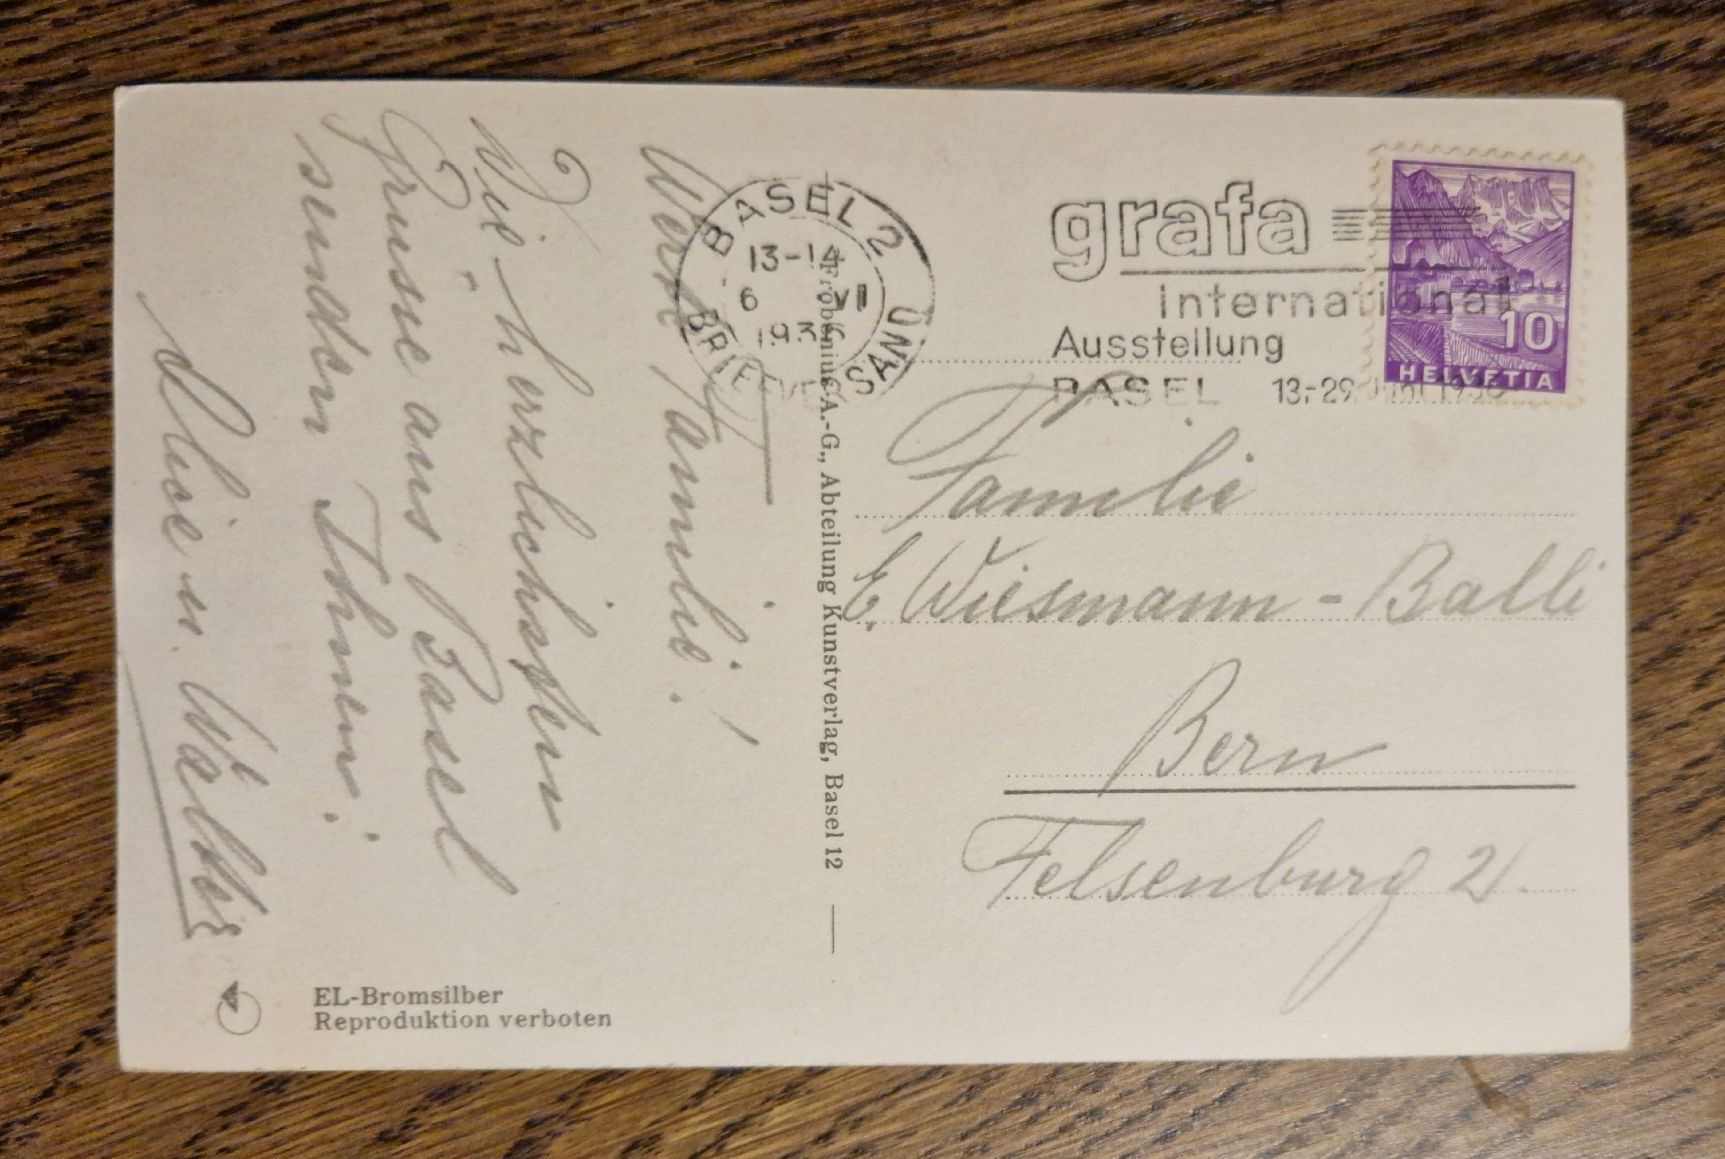 Werte Familie!
Die herzlichsten
Grüsse aus Basel
senden Ihnen:
Alice u. Walter
Frobenius A.-G., Abteilung Kunstverlag, Basel 12
EL-Bromsilber
Reproduktion verboten
BASEL 2
13-14
6 VI
1936
BRIEFVERSAND
grafa
international
Ausstellung
BASEL 13.-29. Juni 1936
10
HELVETIA
Familie
E. Wiesmann-Balli
Bern
Felsenburg 2.